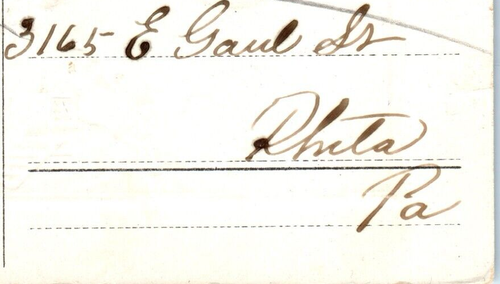 3165 E Gaul St
Phila
Pa